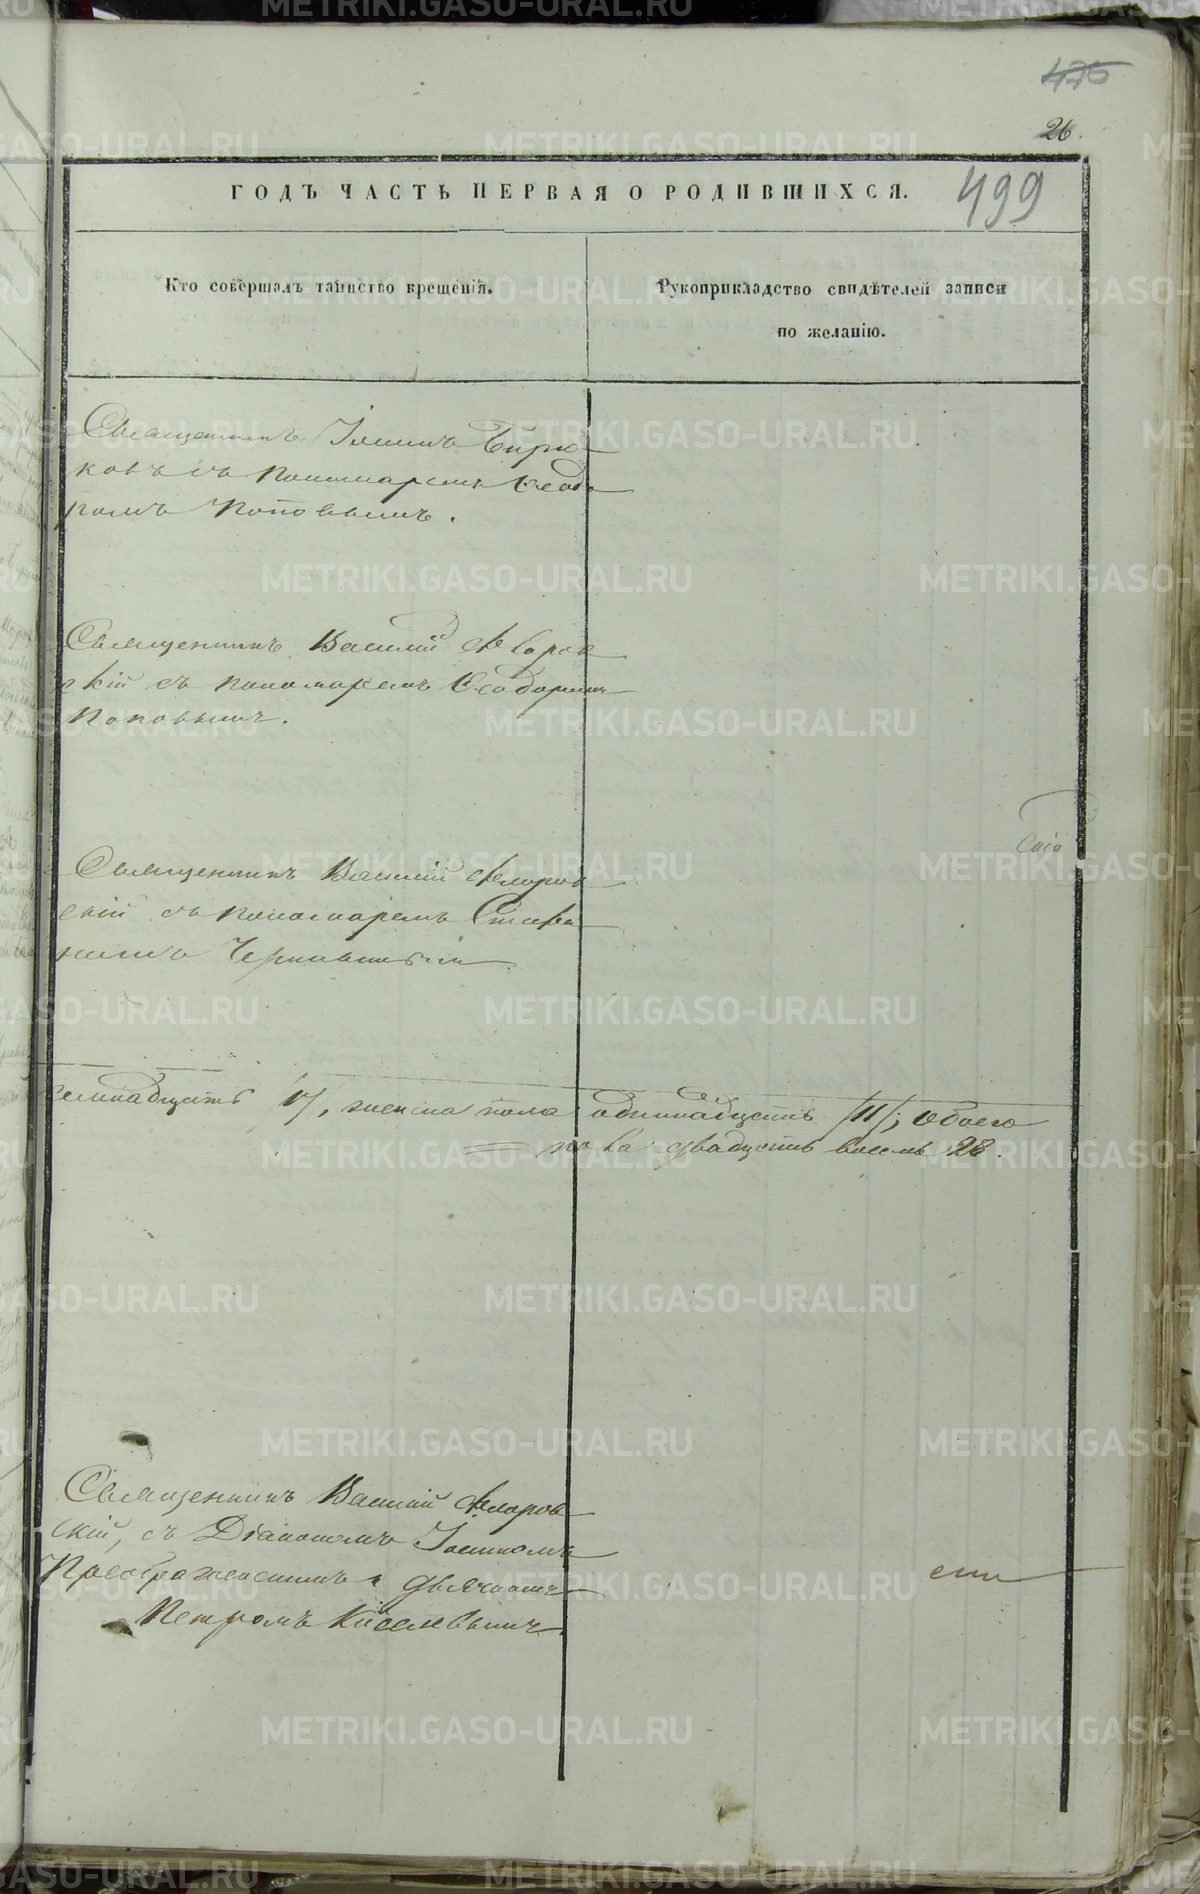 436
26.
ГОДЪ ЧАСТЬ ПЕРВАЯ О РОДИВШИХСЯ.
499
Кто совершалъ таинство крещенія.
Рукоприкладство свидѣтелей записи
по желанію.
Священникъ Іоаннъ Бирю-
ковъ съ пономаремъ Ѳеодо
ромъ Поповымъ.
Священникъ Василій Флоров
скій съ пономаремъ Ѳеодоромъ
Поповымъ.
Священникъ Василій Флоров
скій съ пономаремъ Стефа
номъ
семнадцать /17/, женска пола одиннадцать /11/; обоего
пола двадцать восемь 28.
Священникъ Василій Флоров
скій, съ Діакономъ Іоанномъ
Преображенскимъ и дьячкомъ
Петромъ Киселевымъ
METRIKI.GASO-URAL.RU